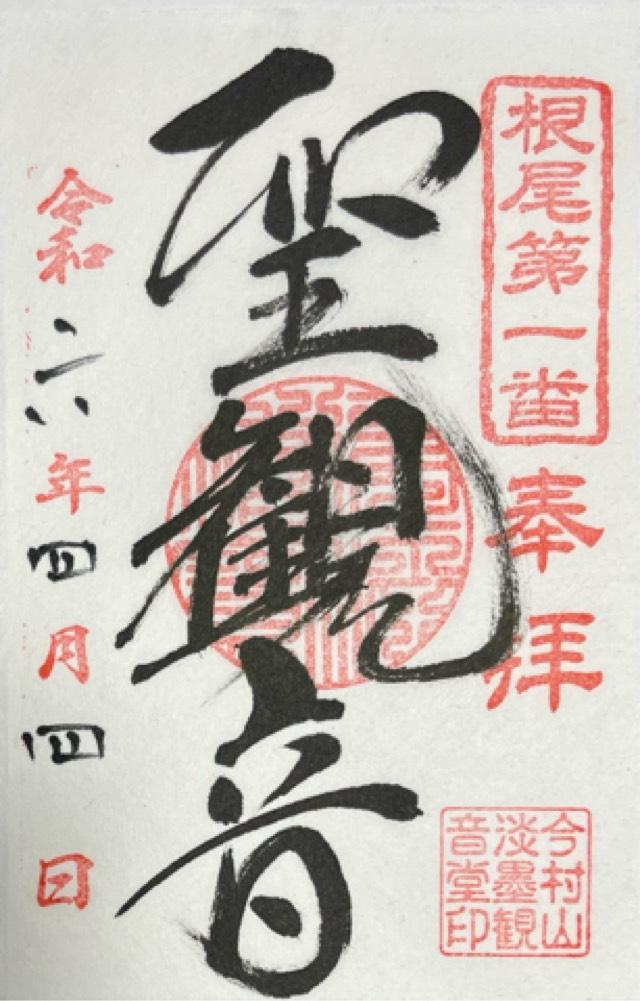 根尾第一番
奉拝
今村山
淡墨観
音堂印
聖観音
令和六年四月四日